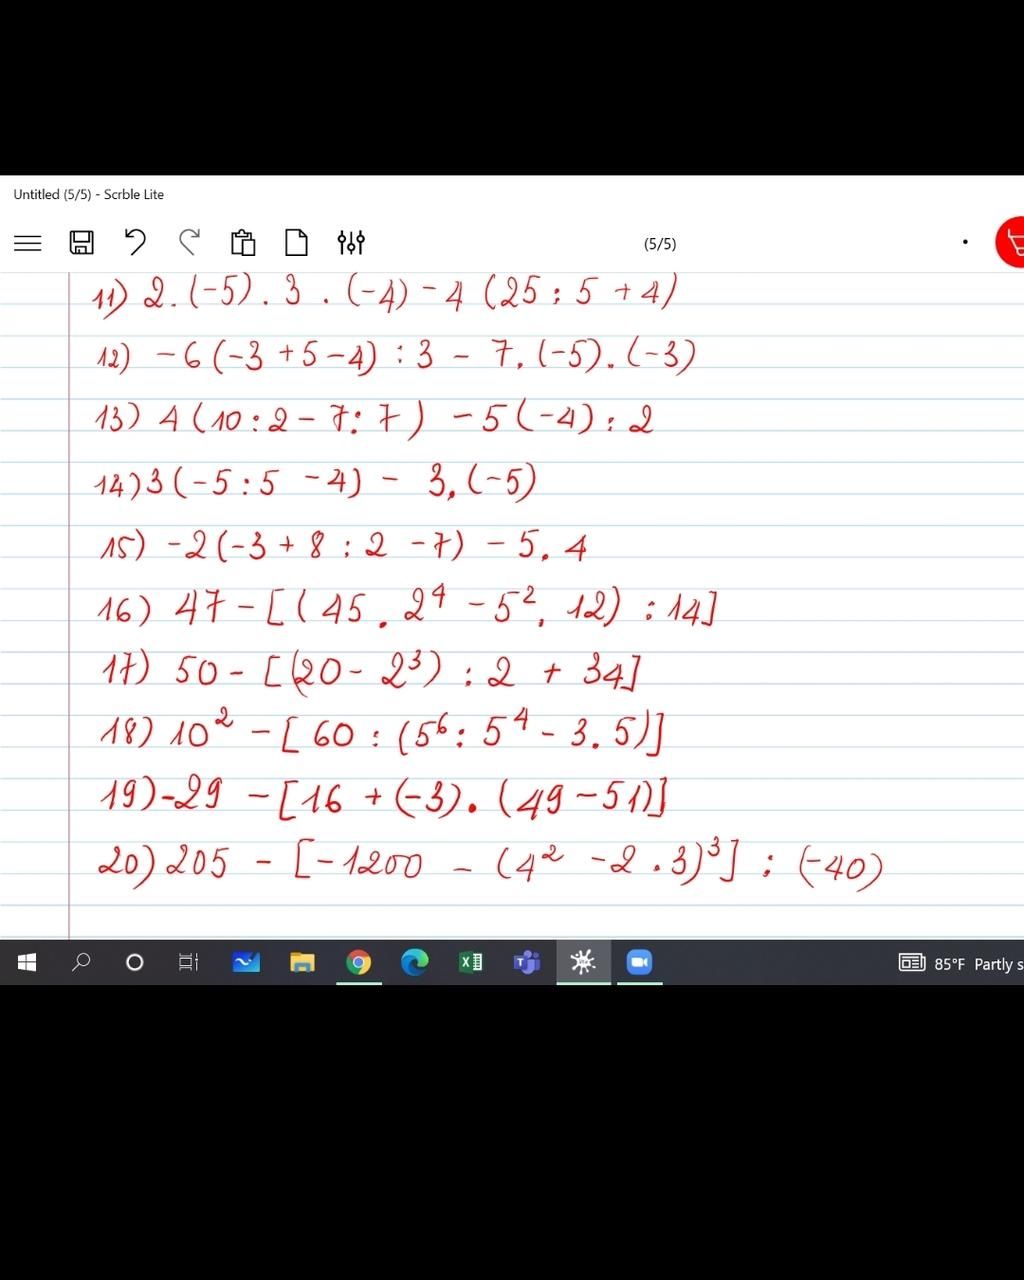 Untitled (5/5) - Scrble Lite
(5/5)
11) 2. (-5) . 3 . (-4) - 4 (25 : 5 + 4)
12) -6 (-3 + 5 - 4) : 3 - 7. (-5). (-3)
13) 4 (10 : 2 - 7 : 7) - 5 (-4) : 2
14) 3 (-5 : 5 - 4) - 3. (-5)
15) -2 (-3 + 8 : 2 - 7) - 5. 4
16) 47 - [( 45 . 2⁴ - 5². 12) : 14]
17) 50 - [(20 - 2³) : 2 + 34]
18) 10² - [ 60 : (5⁶ : 5⁴ - 3. 5)]
19) -29 - [16 + (-3). (49 - 51)]
20) 205 - [-1200 - (4² - 2 . 3)³] : (-40)
85°F Partly s